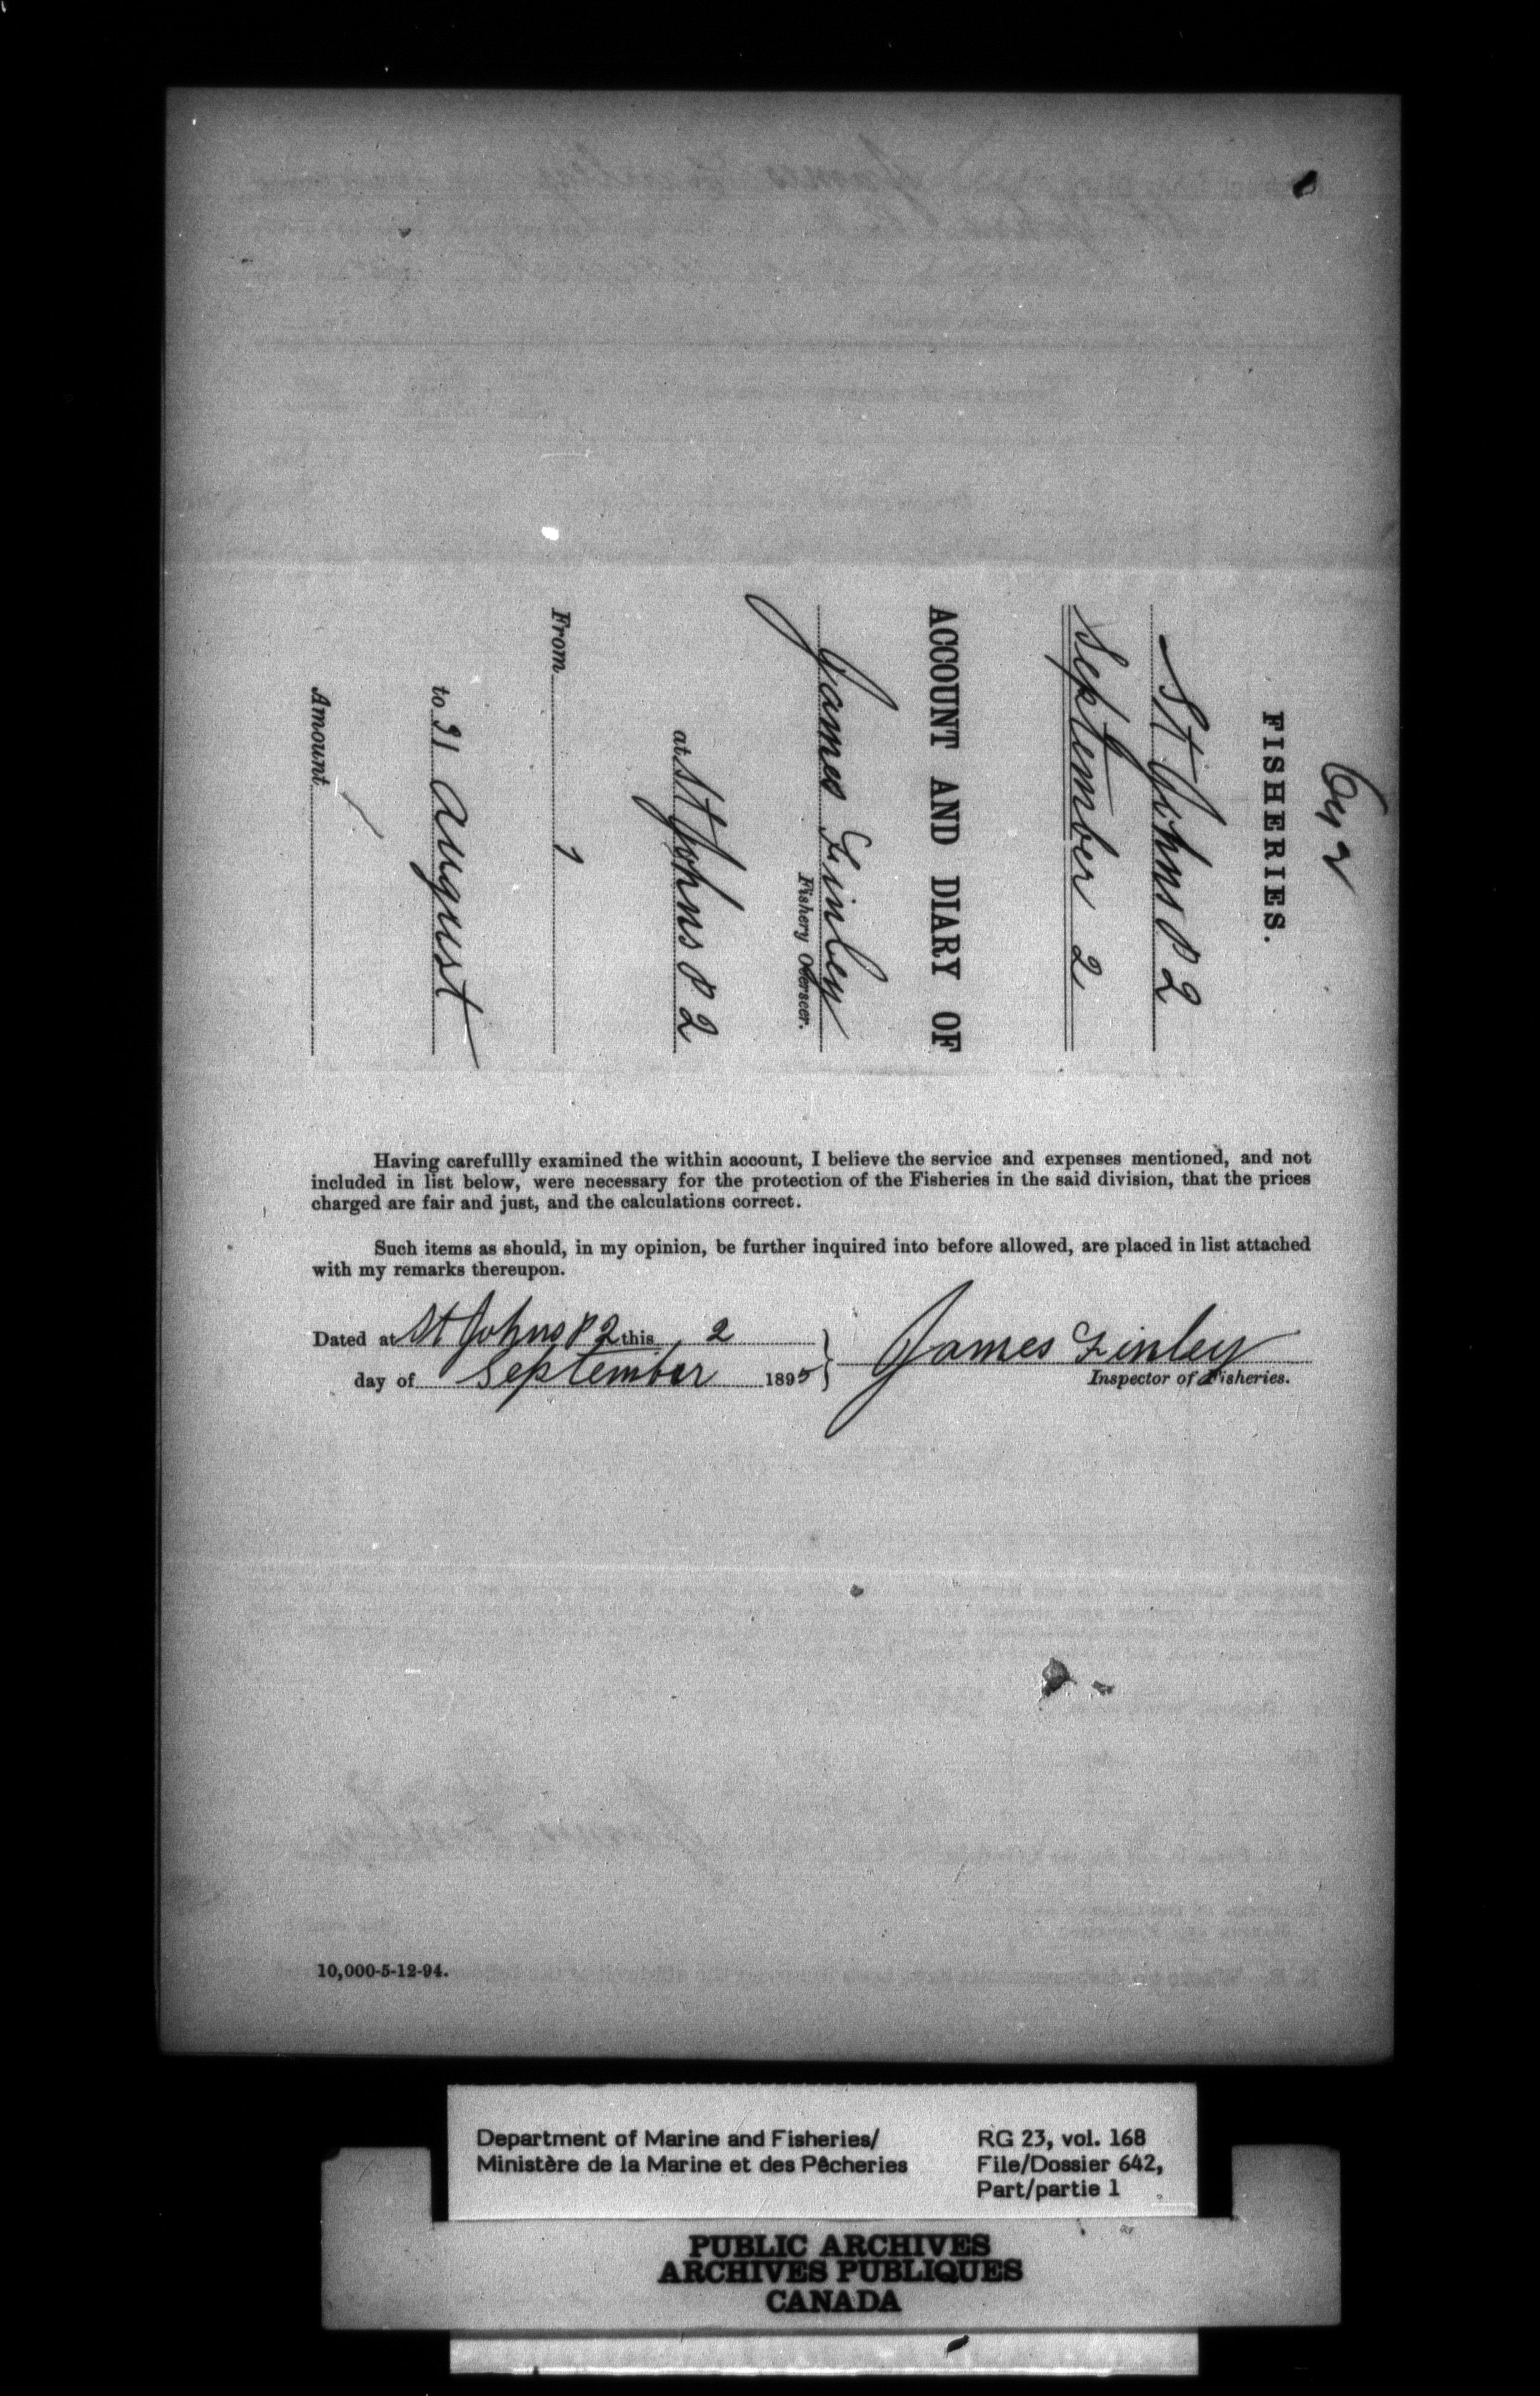 FISHERIES.
St Johns P 2
September 2
ACCOUNT AND DIARY OF
James Finley
Fishery Overseer.
at St Johns P 2
From 1
to 31 August
Amount
Having carefullly examined the within account, I believe the service and expenses mentioned, and not
included in list below, were necessary for the protection of the Fisheries in the said division, that the prices
charged are fair and just, and the calculations correct.
Such items as should, in my opinion, be further inquired into before allowed, are placed in list attached
with my remarks thereupon.
Dated at St Johns P 2 this 2
day of September 1895
James Finley
Inspector of Fisheries.
10,000-5-12-94.
Department of Marine and Fisheries/
Ministère de la Marine et des Pêcheries
RG 23, vol. 168
File/Dossier 642,
Part/partie 1
PUBLIC ARCHIVES
ARCHIVES PUBLIQUES
CANADA